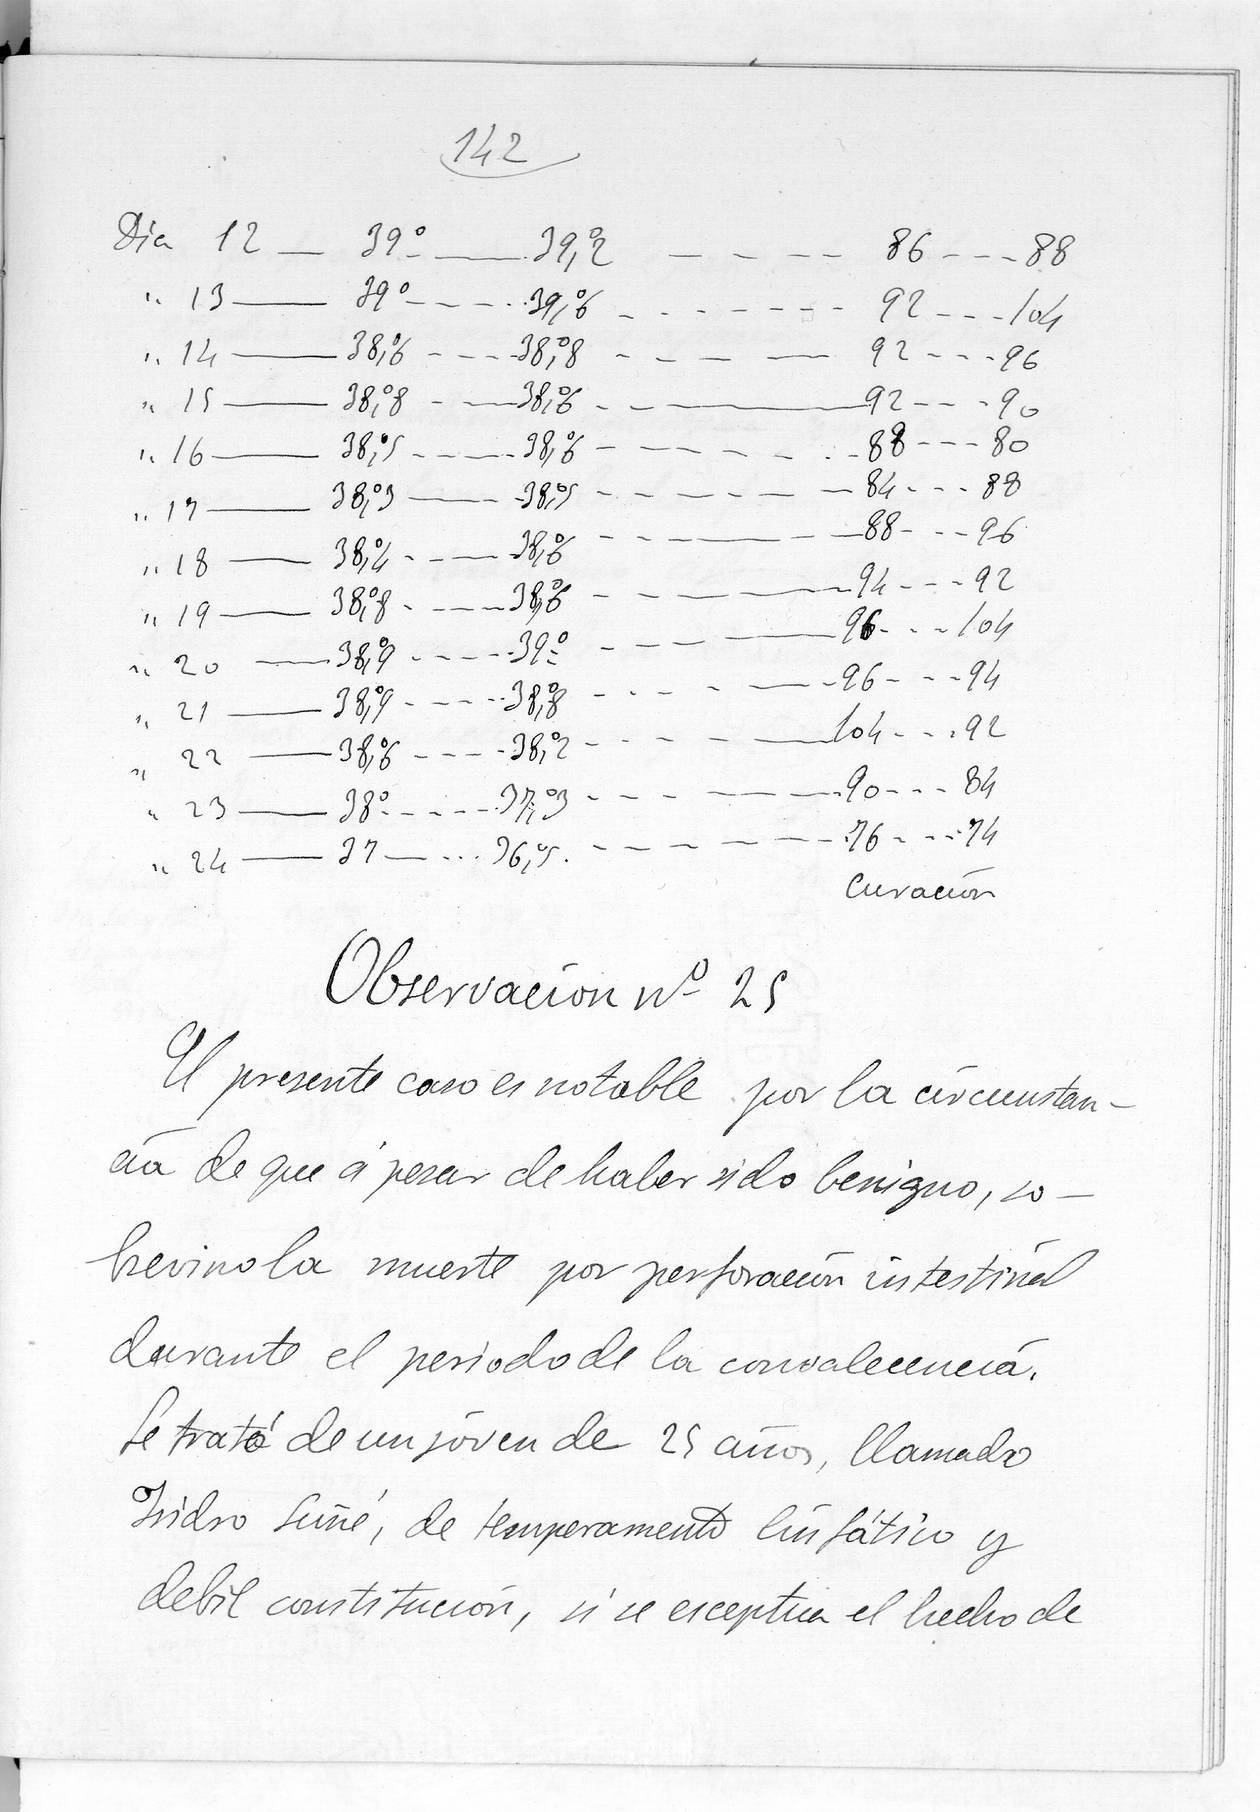 142
Dia 12 — 39º - — 39,º2 — - - - 86 - - - 88
" 13 — 39º - - - - 39,º6 - - - - - - 92 - - - 104
" 14 — 38,º6 - - - - 38,º8 - - — — 92 - - - 96
" 15 — 38,º8 - — 38,º6 - - — 92 - - - 90
" 16 — 38,º5 - - - - 38,º6 - - - - - - 88 - - - 80
" 17 — 38,º3 — - 38,º5 - - - - — 84 - - - 88
" 18 — 38,º4 - - - - 38,º6 - - - — 88 - - - 96
" 19 — 38,º8 - - - - 38,º6 - - — 94 - - - 92
" 20 — 38,º9 - - - - 39º - - — 96 - - - 104
" 21 — 38,º9 - - - - 38,º8 - - - — 96 - - - 94
" 22 — 38,º6 - - - - 38,º2 - - - — 104 - - - 92
" 23 — 38º - - - - 37,º3 - - - — 90 - - - 84
" 24 — 37 — - - - 36,º5. - - - - - 76 - - - 74
Curación
Observacion nº 25
El presente caso es notable por la circunstan-
cia de que á pesar de haber sido benigno, so-
brevino la muerte por perforación intestinal
durante el periodo de la convalecencia.
Se trató de un jóven de 25 años, llamado
Isidro Suñé, de temperamento linfático y
debil constitución, si se esceptua el hecho de